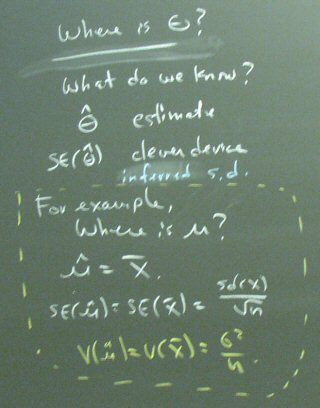 Where is Θ?
What do we know?
θ̂ estimate
SE(θ̂) clever device
inferred s.d.
For example,
Where is μ?
μ̂ = x̄.
SE(μ̂) = SE(x̄) = sd(x)/√n
V(μ̂) = V(x̄) = σ²/n.